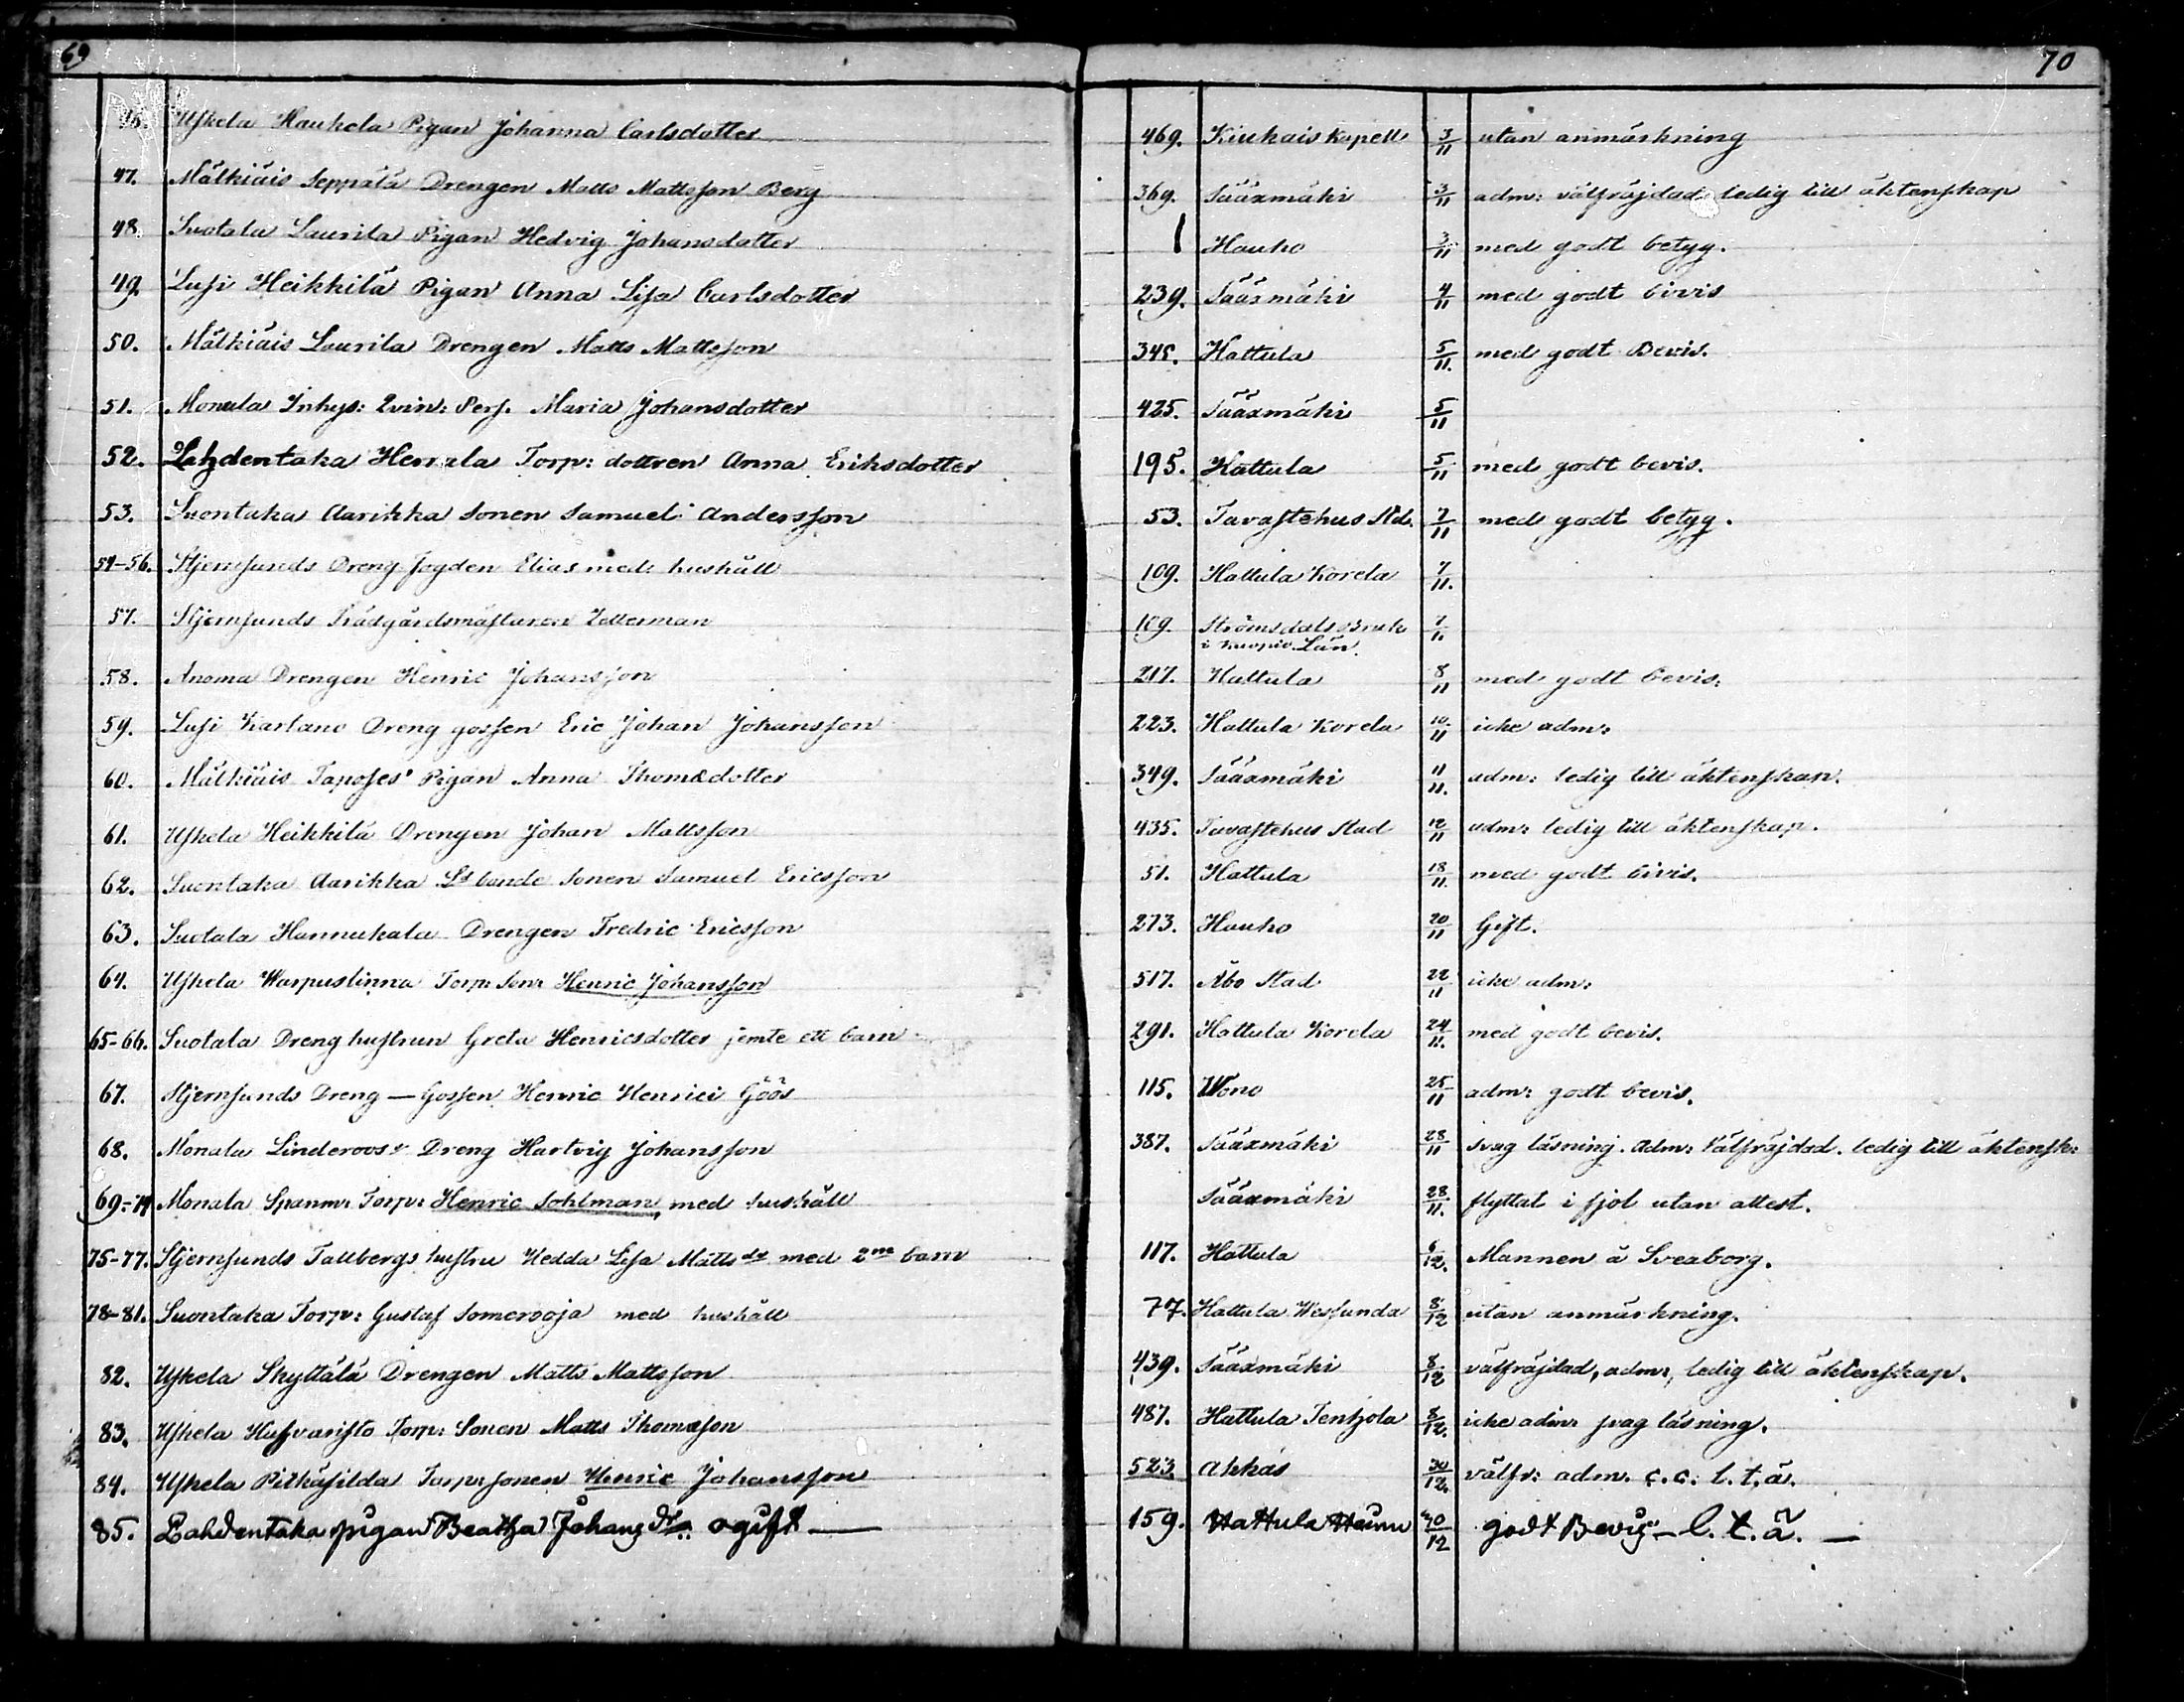 69
70
46. Uskela Haukela Pigan Johanna Carlsdotter 469. Kiukais Kapell 3/11 utan anmärkning
47. Mälkiäis Seppälä Drengen Matts Mattsson Berg 369. Sääxmäki 3/11 adm: välfräjdad ledig till äktenskap
48. Suotala Laurila Pigan Hedvig Johansdotter 1 Hauho 3/11 med godt betyg.
49. Lusi Heikkilä Pigan Anna Lisa Carlsdotter 239. Sääxmäki 4/11 med godt bevis
50. Mälkiäis Laurila Drengen Matts Mattsson 345. Hattula 5/11. med godt Bevis.
51. Monala Inhys: Qvin: Pers. Maria Johansdotter 425. Sääxmäki 5/11
52. Lahdentaka Herrala Torp: dottren Anna Eriksdotter 195. Hattula 5/11 med godt bevis.
53. Suontaka Aarikka Sonen Samuel Andersson 53. Tavastehus Std. 7/11 med godt betyg.
54-56. Stjernsunds Dreng Fogden Elias med hushåll 109. Hattula Korela 7/11.
57. Stjernsunds Trädgårdsmästaren Zetterman 109. Strömsdals Bruk 7/11
i Kuopio Län.
58. Anoma Drengen Henric Johansson 217. Hattula 8/11 med godt bevis.
59. Lusi Kartano Dreng gossen Eric Johan Johansson 223. Hattula Korela 10/11 icke adm:
60. Mälkiäis Taposes Pigan Anna Thomædotter 349. Sääxmäki 11/11. adm: ledig till äktenskap.
61. Uskela Heikkilä Drengen Johan Mattsson 435. Tavastehus Stad 12/11 adm: ledig till äktenskap.
62. Suontaka Aarikka Ldbonde Sonen Samuel Ericsson 51. Hattula 18/11. med godt bevis.
63. Suotala Hannukala Drengen Fredric Ericsson 273. Hauho 20/11 Gift.
64. Uskela Warpuslinna Torp: Son: Henric Johansson 517. Åbo Stad 22/11 icke adm:
65-66. Suotala Dreng hustrun Greta Henricsdotter jemte ett barn 291. Hattula Korela 24/11. med godt bevis.
67. Stjernsunds Dreng — Gossen Henric Henrici Göös 115. Wåno 25/11 adm: godt bevis.
68. Monala Linderoos: Dreng Hartvig Johansson 387. Sääxmäki 28/11 svag läsning. Adm: Välfräjdad. ledig till äktensk:
69-74 Monala Spanm: Torp: Henric Sohlman, med hushåll Sääxmäki 28/11. flyttat i fjol utan attest.
75-77. Stjernsunds Tallbergs hustru Hedda Lisa Matts dr med 2ne barn 117. Hattula 6/12. Mannen å Sveaborg.
78-81. Suontaka Torp: Gustaf Somerooja med hushåll 77. Hattula Wesunda 8/12 utan anmärkning.
82. Uskela Skyttälä Drengen Matts Mattsson 439. Sääxmäki 8/12 välfräjdad, adm:, ledig till äktenskap.
83. Uskela Husvaristo Torp: Sonen Matts Thomasson 487. Hattula Tenhjola 8/12. icke adm: svag läsning.
84. Uskela Pitkäsilda Torp: Sonen Henric Johansson 523. Akkas 30/12. välfr: adm. c.c: l.t.ä.
85. Lahdentaka pigan Beatha Johans dr: ogift — 159. Hattula 30/12 godt Bevis — l.t.ä. —